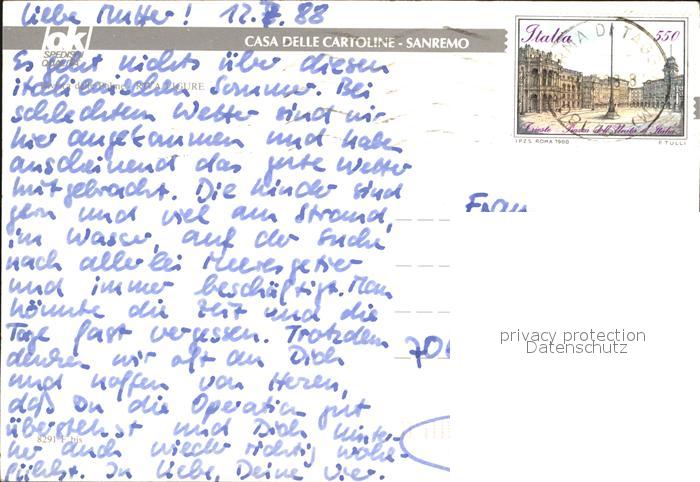 Liebe Mutter! 12.7.88
CASA DELLE CARTOLINE - SANREMO
Es geht nichts über diesen
italienischen Sommer. Bei
RIVA LIGURE
schlechtem Wetter sind wir
hier angekommen und haben
anscheinend das gute Wetter
mitgebracht. Die Kinder sind
gern und viel am Strand,
im Wasser, auf der Suche
nach allerlei Meeresgetier
und immer beschäftigt. Man
könnte die Zeit und die
Tage fast vergessen. Trotzdem
denken wir oft an Dich
und hoffen von Herzen,
daß Du die Operation gut
überstehst und Dich hinter-
her auch wieder richtig wohl-
fühlst. In Liebe, Deine Vier.
8291 E bis
Italia 550
Trieste - Piazza dell'Unità d'Italia
I.P.Z.S. ROMA 1988 F. TULLI
Frau
70
privacy protection
Datenschutz